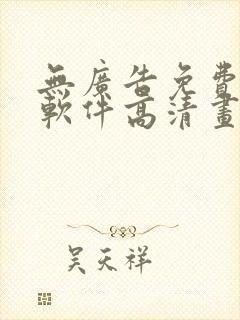 無廣告免費
軟件高清畫
吴天祥